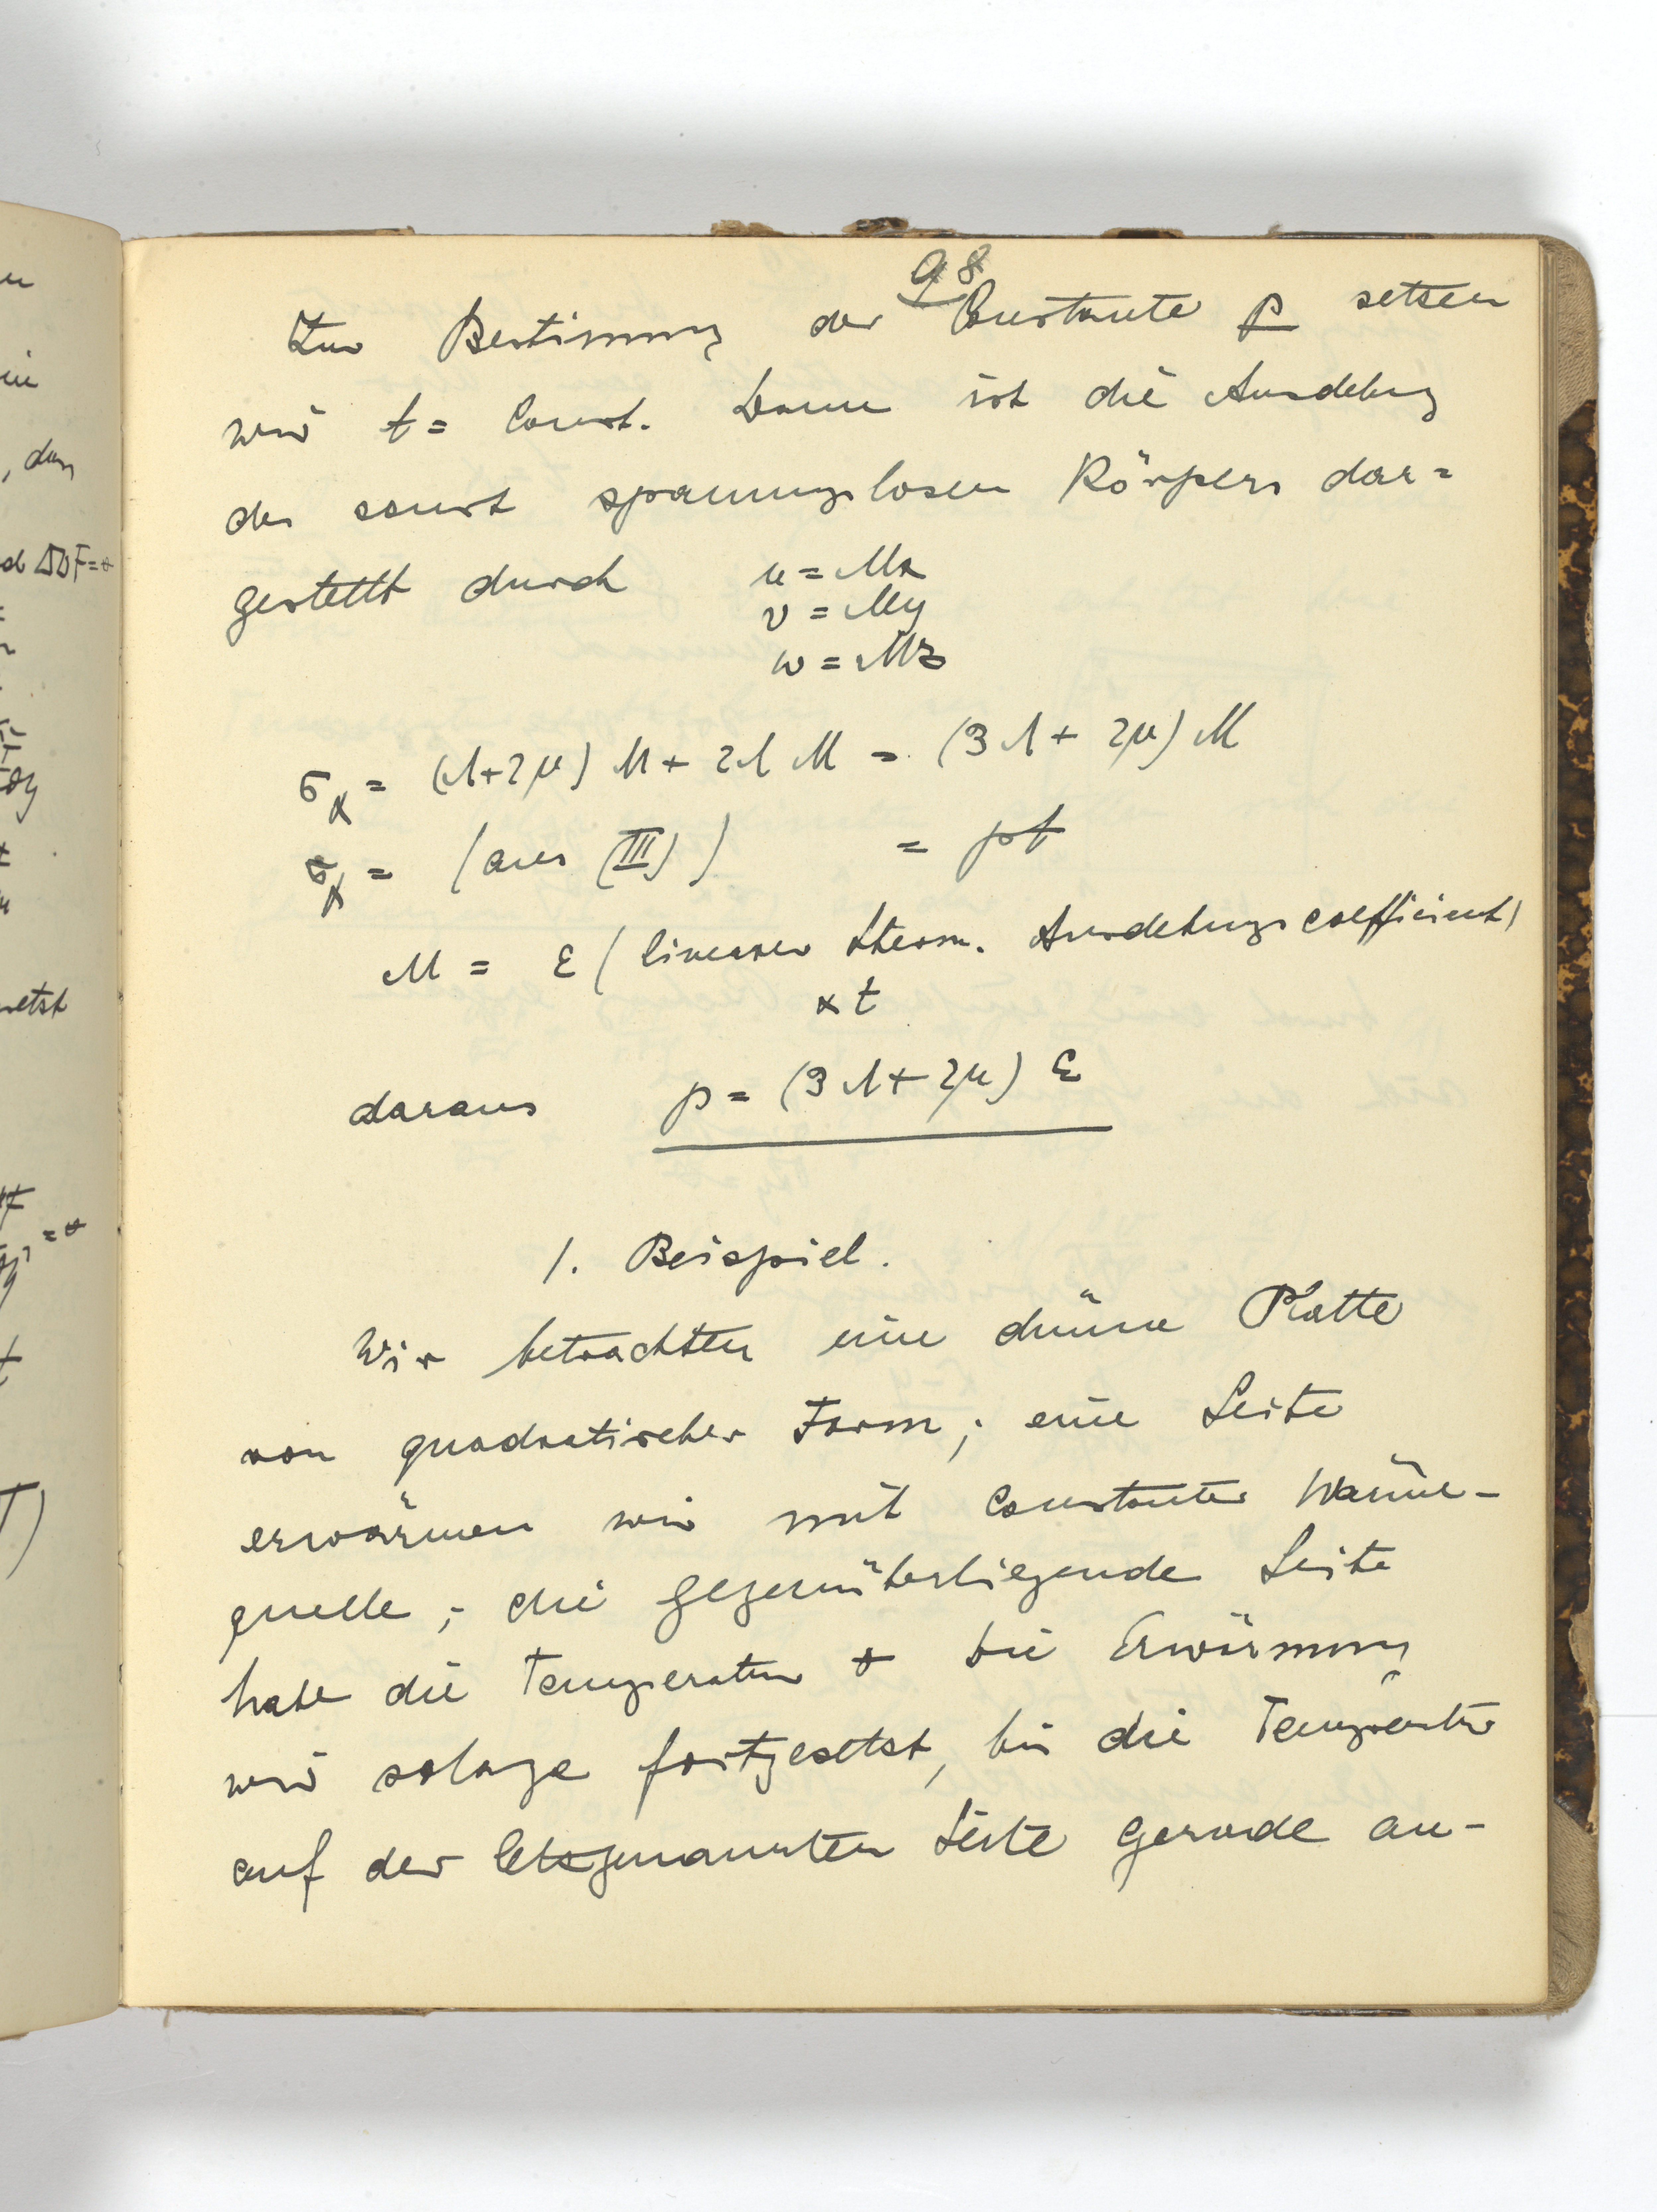 98
Zur Bestimmung der Constante p setzen
wir t = Const. Dann ist die Ausdehng
des sonst spannungslosen Körpers dar=
gestellt durch u = Mx
v = My
w = Mz
σx = (Λ+2μ) M + 2Λ M = (3Λ + 2μ) M
σx = (aus (III)) = pt
M = ε (linearer therm. Ausdehungscoefficient)
× t
daraus p = (3Λ+2μ) ε
1. Beispiel.
Wir betrachten eine dünne Platte
von quadratischer Form; eine Seite
erwärmen wir mit constanter Wärme-
quelle; die gegenüberliegende Seite
habe die Temperatur 0 die Erwärmung
wird solange fortgesetzt, bis die Temperatur
auf der letzgenannten Seite gerade an-
, dass
d ΔΔF=0
etzt
= 0
T)